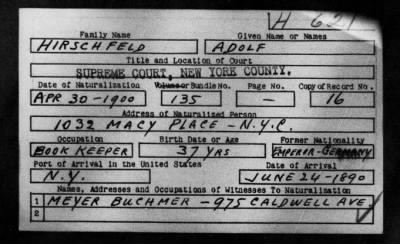 H 621
Family Name Given Name or Names
HIRSCHFELD ADOLF
Title and Location of Court
SUPREME COURT, NEW YORK COUNTY.
Date of Naturalization Volume or Bundle No. Page No. Copy of Record No.
APR 30-1900 135 — 16
Address of Naturalized Person
1032 MACY PLACE - N.Y.C.
Occupation Birth Date or Age Former Nationality
BOOK KEEPER 37 YRS EMPEROR-GERMANY
Port of Arrival in the United States Date of Arrival
N.Y. JUNE 24-1890
Names, Addresses and Occupations of Witnesses To Naturalization
1 MEYER BUCHMER - 975 CALDWELL AVE.
2